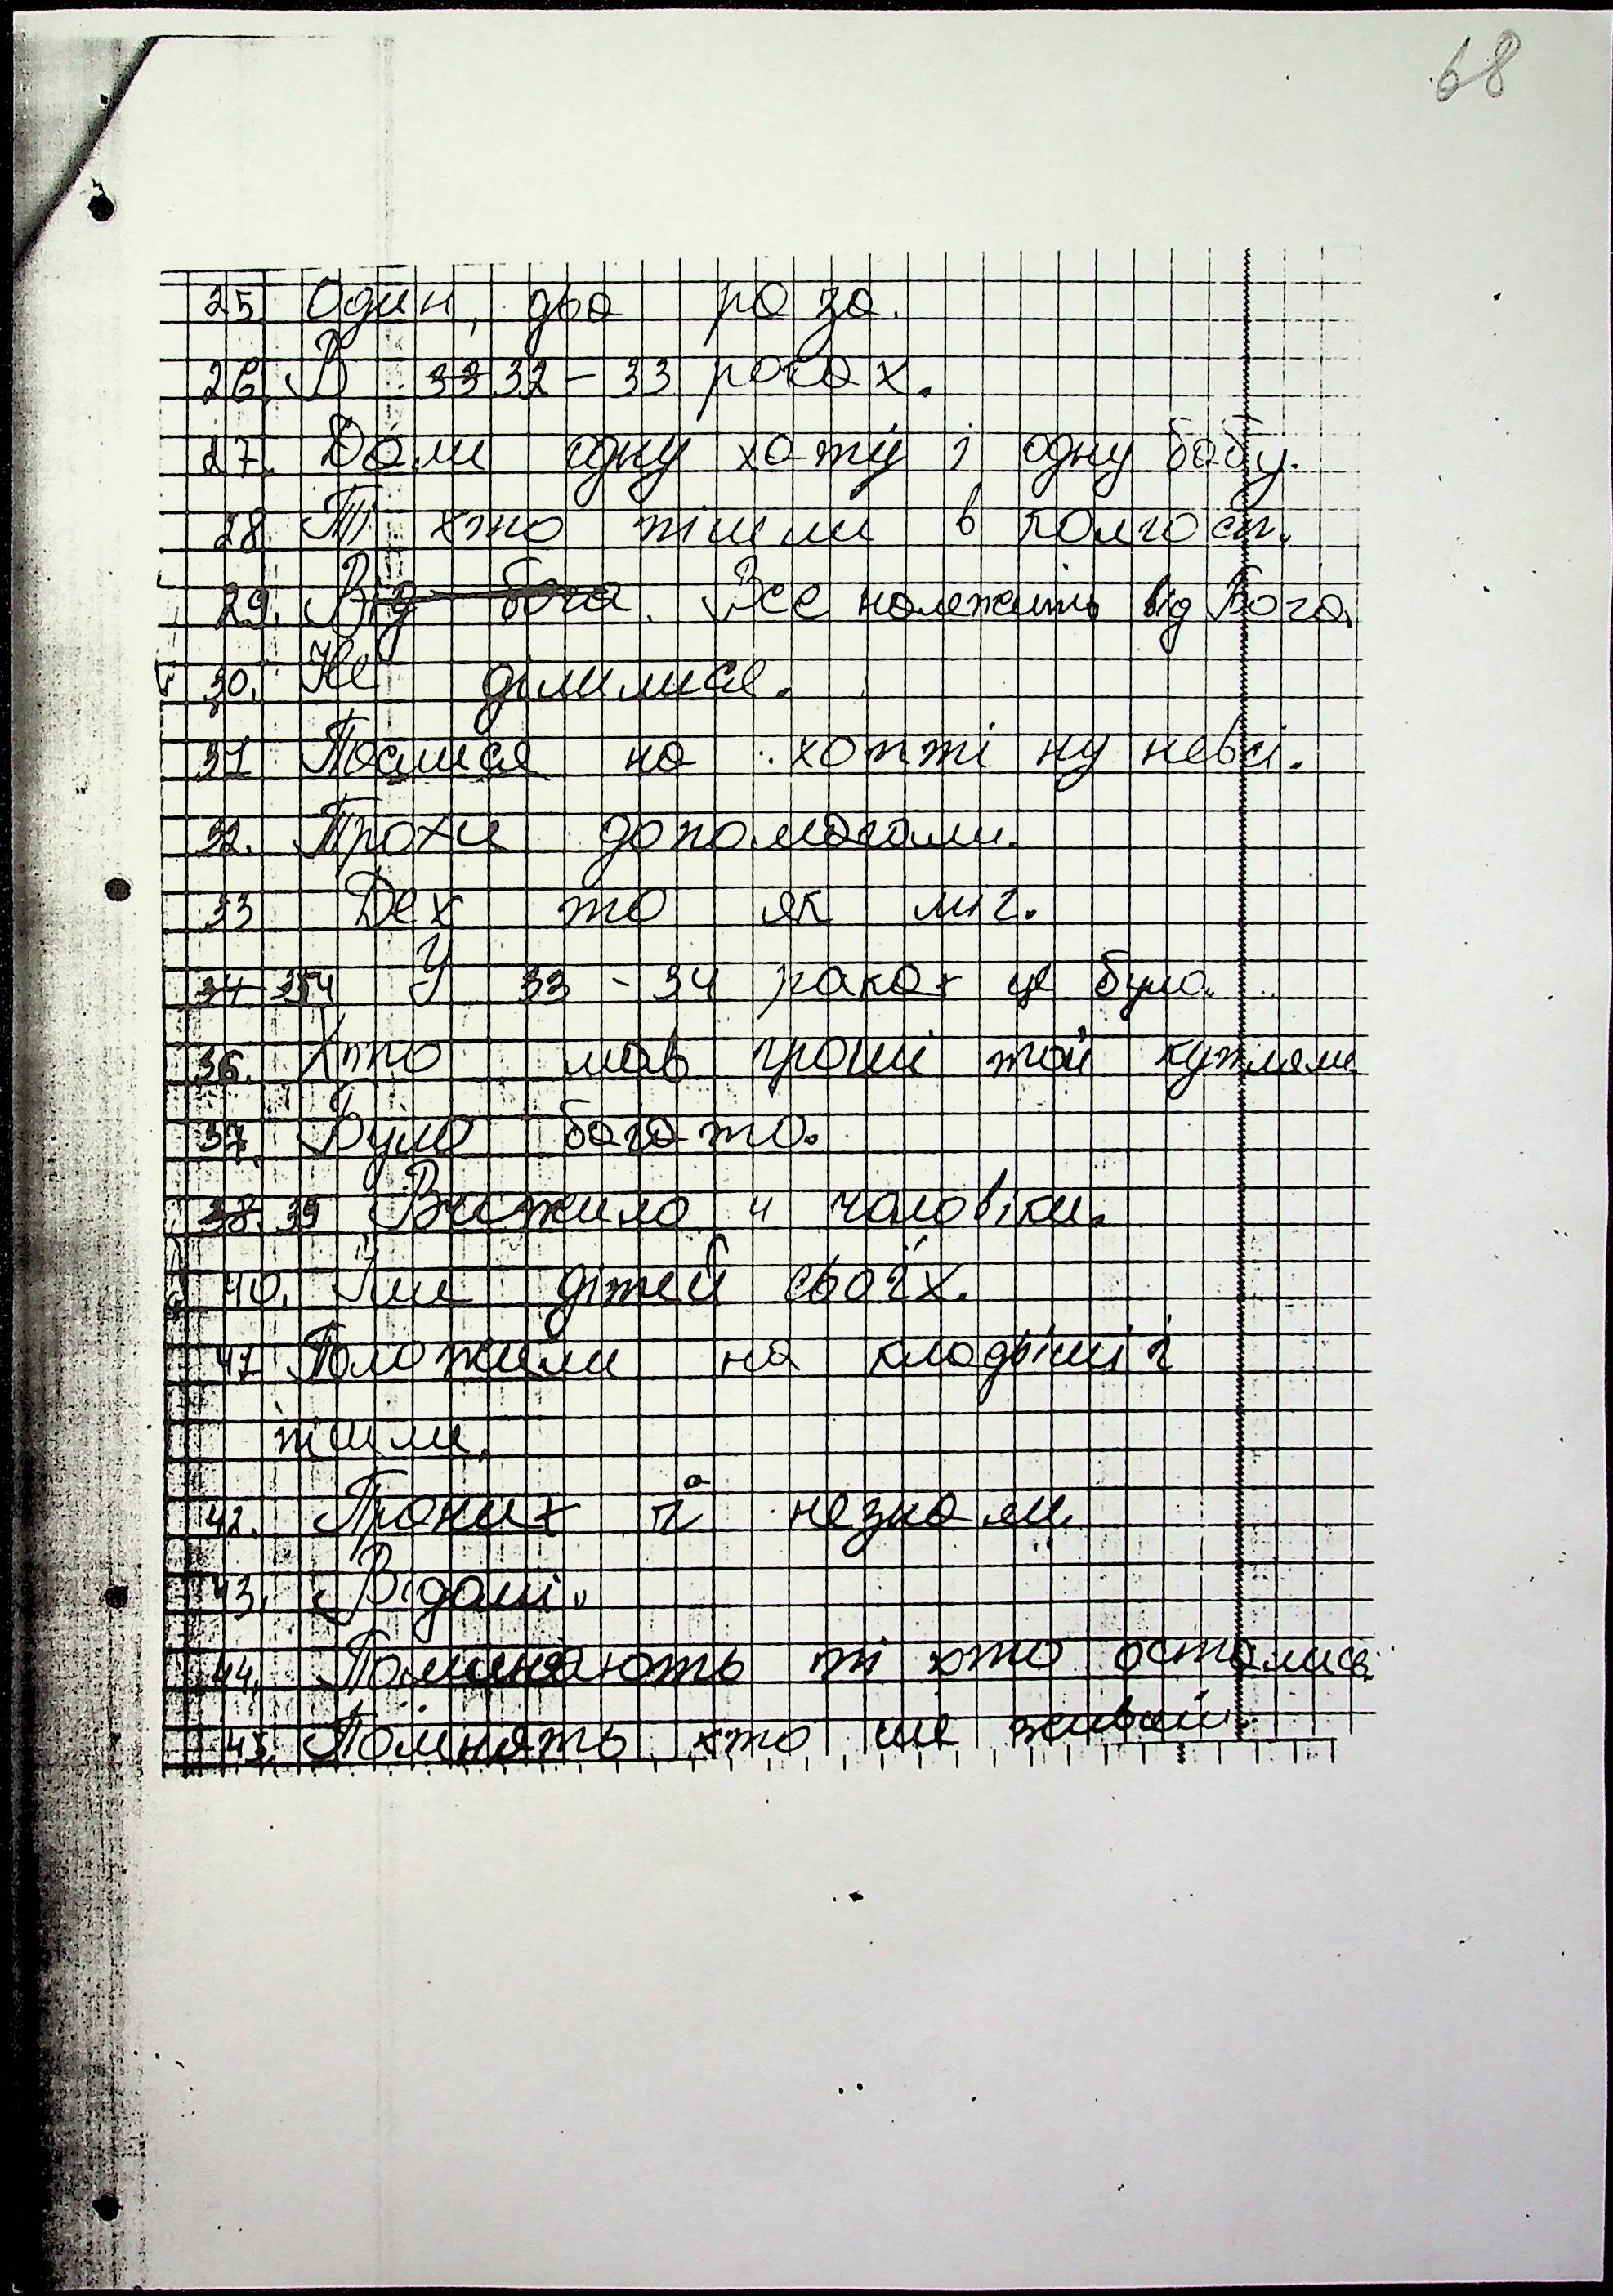 68
25. Один, два раза.
26. В 33 32 – 33 роках.
27. Дали одну хату і одну бабу.
28. Ті хто пішли в колгосп.
29. Від бога. Все належить від Бога.
30. Не ділилися.
31 Послися на хотті ну невсі.
32. Трохи допомагали.
33 Дех то як міг.
34-354 У 33 – 34 раках це була.
36. Хто мав гроші той
37. Було богато.
38. 39 Вижило 4 чаловіки.
40. Їли дітей своїх.
41 Положили на кладвіші і
пішли.
42. Проних і незнали.
43. Відомі.
44. Поминають ті хто осталися.
45. Помнять хто ше живий.